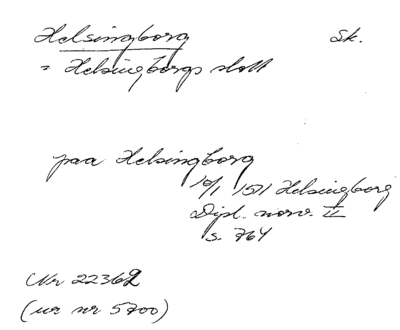 Helsingborg Sk.
= Helsingborgs slott
paa Helsingborg
10/1 1511 Helsingborg
Dipl. norv. II
s. 764
Nr 22362
(ur nr 5700)